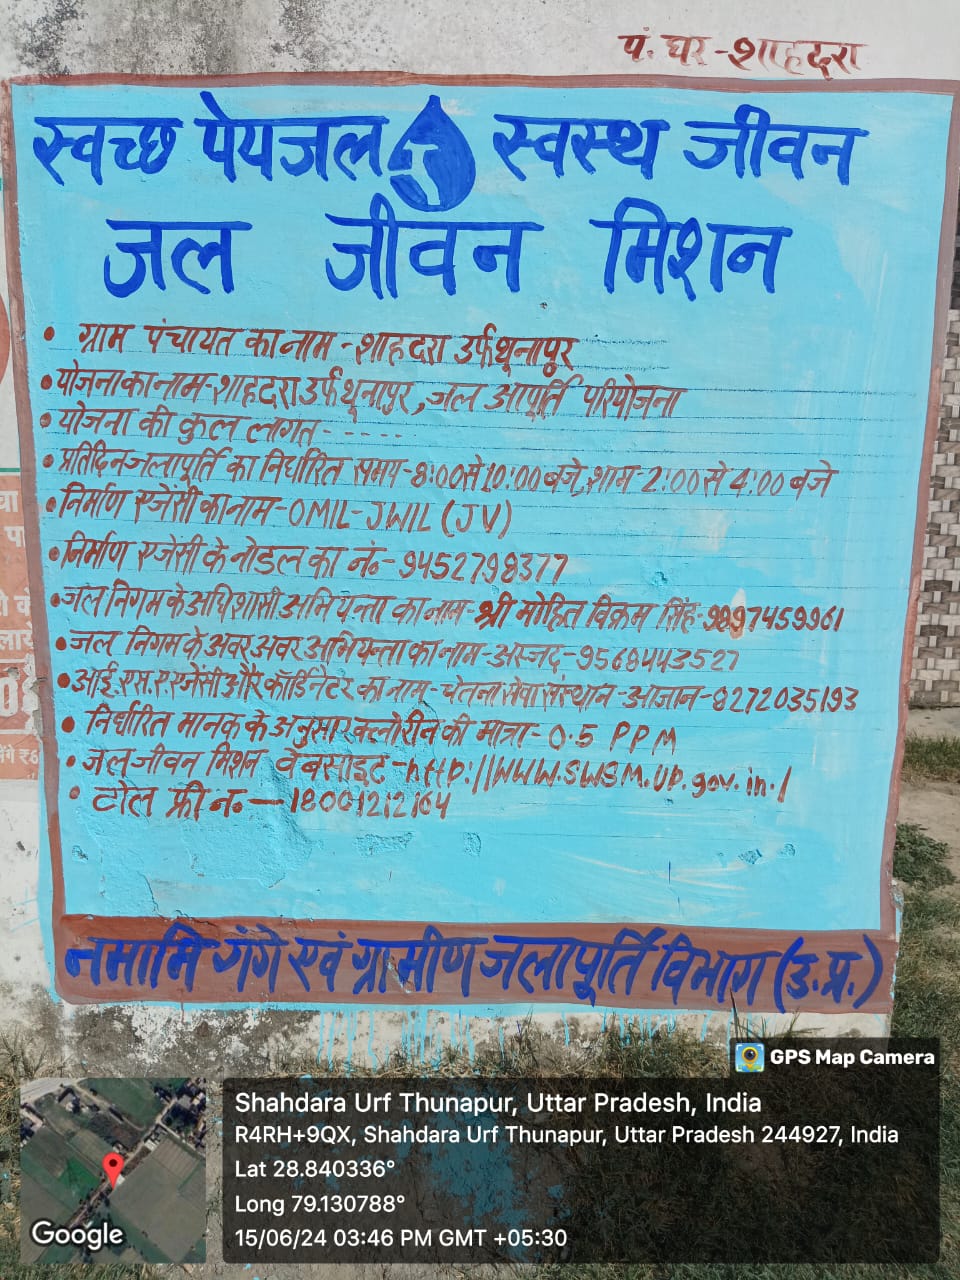 पं. घर - शाहदरा
स्वच्छ पेयजल स्वस्थ जीवन
जल जीवन मिशन
• ग्राम पंचायत का नाम - शाहदरा उर्फ थूनापुर
• योजना का नाम - शाहदरा उर्फ थूनापुर, जल आपूर्ति परियोजना
• योजना की कुल लागत - - - - -
• प्रतिदिन जलापूर्ति का निर्धारित समय - 8:00 से 10:00 बजे, शाम - 2:00 से 4:00 बजे
• निर्माण एजेंसी का नाम - OMIL - JWIL (JV)
• निर्माण एजेंसी के नोडल का नं० - 9452798377
• जल निगम के अधिशासी अभियन्ता का नाम - श्री मोहित विक्रम सिंह - 9897459961
• जल निगम के अवर अवर अभियन्ता का नाम - अस्जद - 9568443527
• आई.एस.ए एजेंसी और कॉर्डिनेटर का नाम - चेतना सेवा संस्थान - आजान - 8272035193
• निर्धारित मानक के अनुसार क्लोरीन की मात्रा - 0.5 PPM
• जल जीवन मिशन वेबसाइट - http://www.swsm.up.gov.in./
• टोल फ्री नं० - 18001212164
नमामि गंगे एवं ग्रामीण जलापूर्ति विभाग (उ.प्र.)
GPS Map Camera
Shahdara Urf Thunapur, Uttar Pradesh, India
R4RH+9QX, Shahdara Urf Thunapur, Uttar Pradesh 244927, India
Lat 28.840336°
Long 79.130788°
15/06/24 03:46 PM GMT +05:30
Google